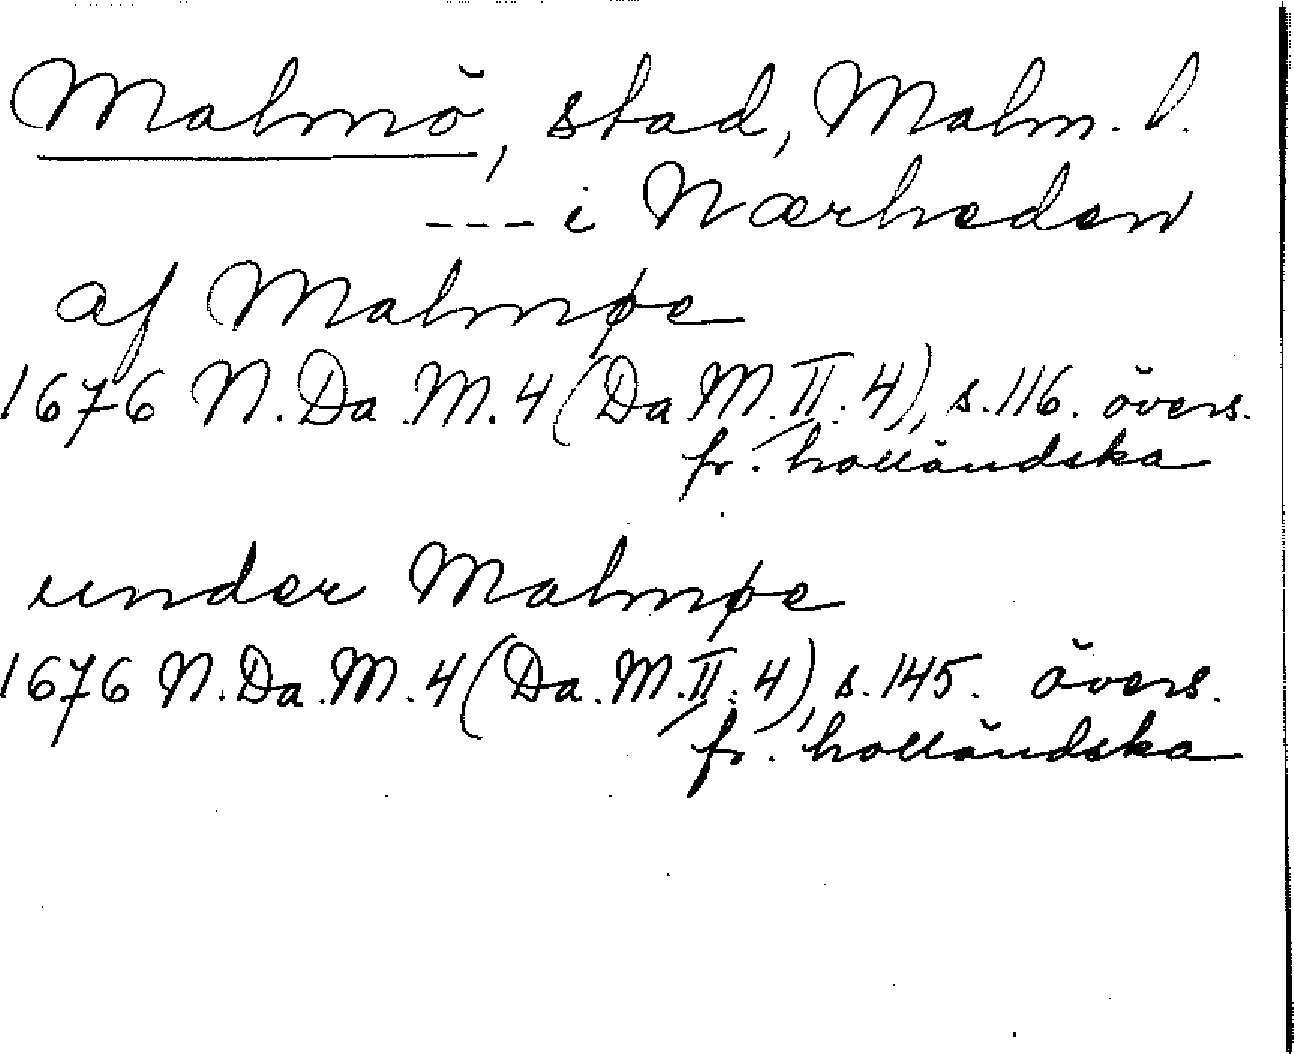 Malmö, stad, Malm. l.
--- i Nærheden
af Malmøe
1676 N. Da. M. 4 (Da M. II. 4), s. 116. övers.
fr. holländska
under Malmøe
1676 N. Da. M. 4 (Da. M. II. 4), s. 145. övers.
fr. holländska